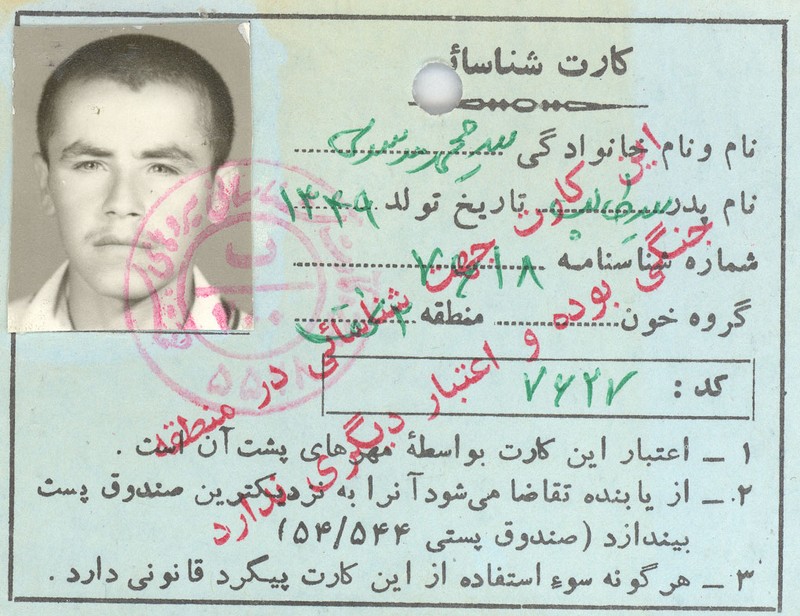 کارت شناسائ
نام و نام خانوادگی سید محمد موسوی
نام پدر سید تاریخ تولد ۱۳۴۹
شماره شناسنامه
گروه خون منطقه
کد : ۷۶۲۷
۱ ـ اعتبار این کارت بواسطهٔ مهرهای پشت آن است .
۲ ـ از یابنده تقاضا می‌شود آنرا به نزدیکترین صندوق پست
بیندازد (صندوق پستی ۵۴/۵۴۴)
۳ ـ هرگونه سوء استفاده از این کارت پیگرد قانونی دارد .
این کارت جهت شناسائی در منطقه
جنگی بوده و اعتبار دیگری ندارد